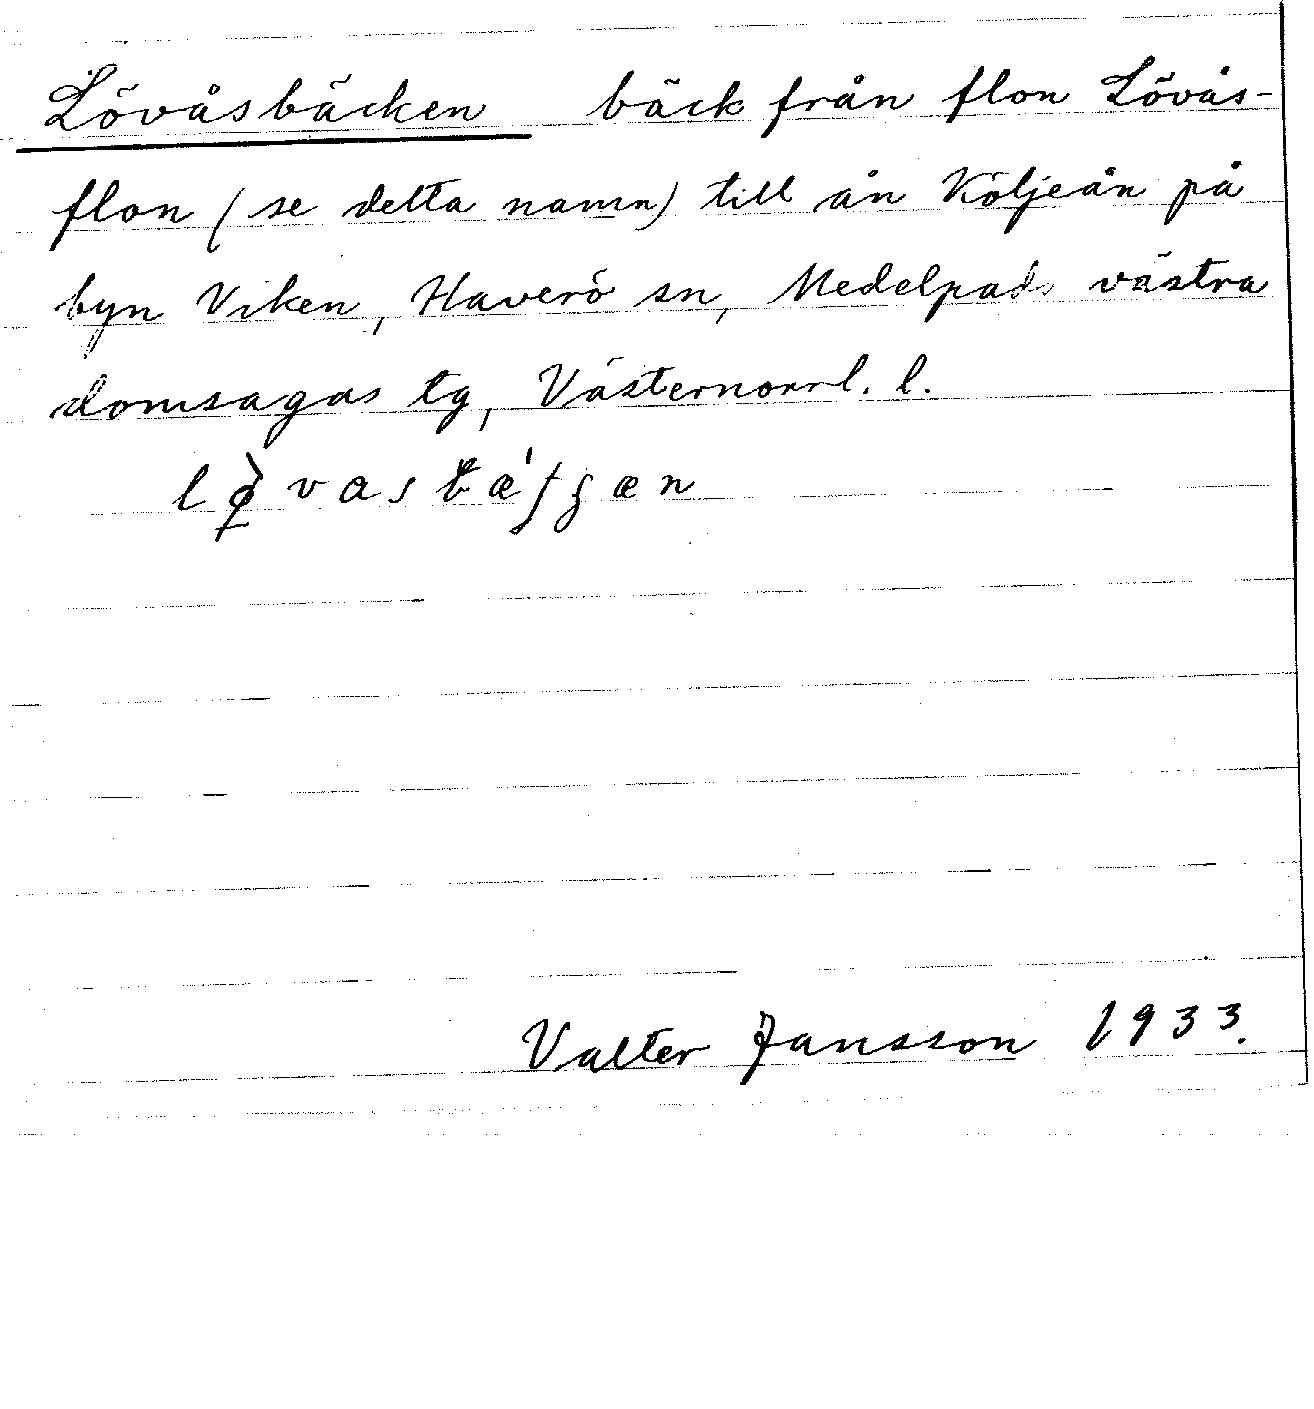 Lövåsbäcken bäck från flon Lövås-
flon (se detta namn) till ån Köljeån på
byn Viken, Haverö sn, Medelpads västra
domsagas tg, Västernorrl. l.
Valter Jansson 1933.